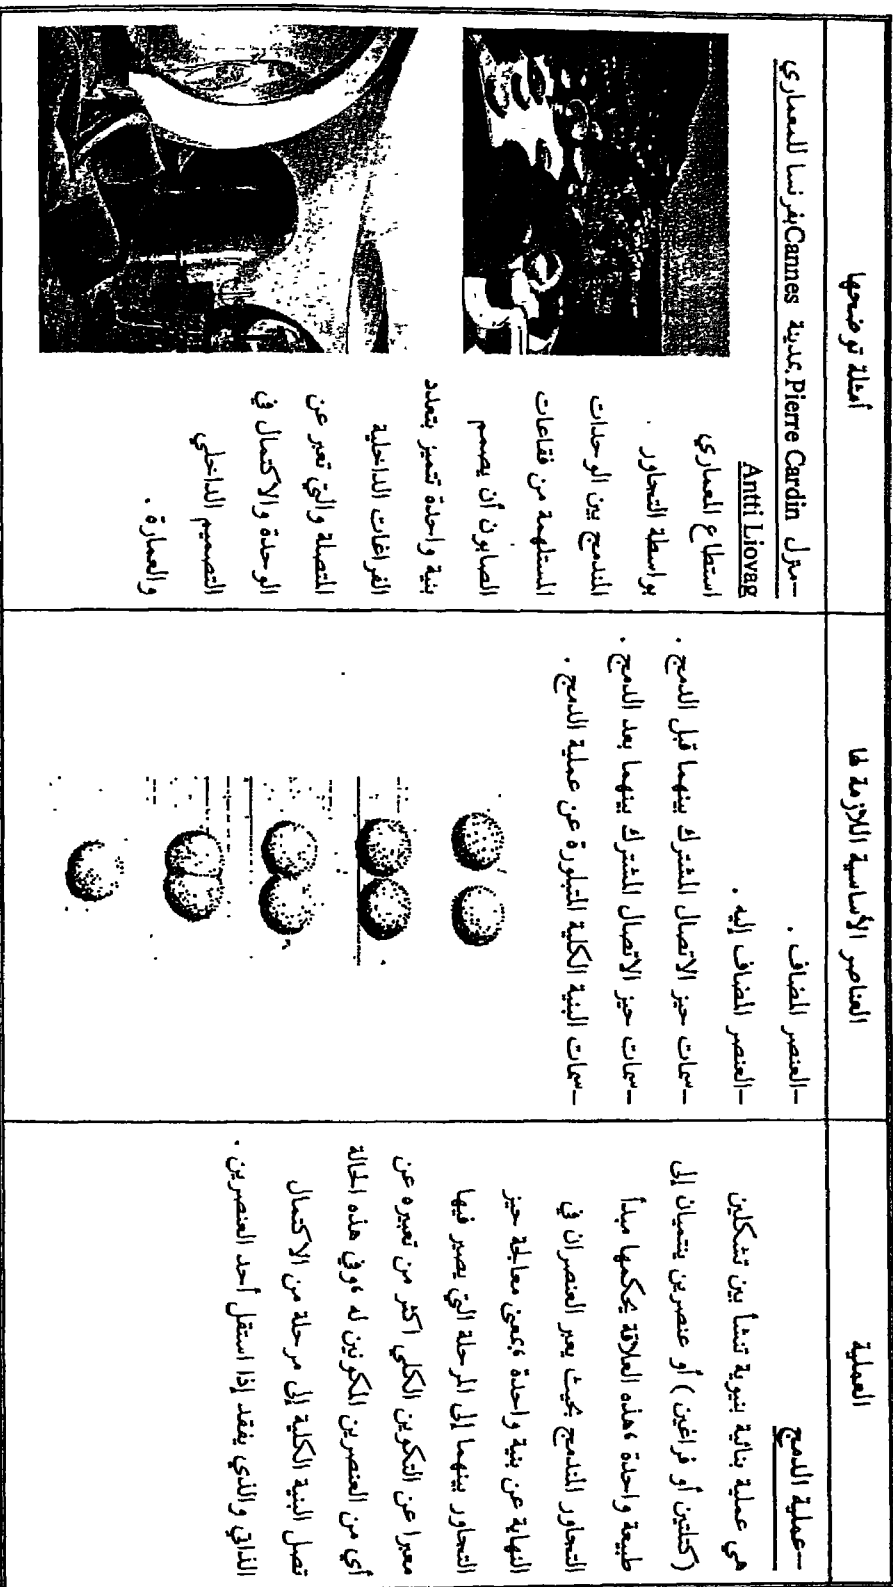 العملية
العناصر الأساسية اللازمة لها
أمثلة توضحها
–عملية الدمج
هي عملية بنائية بنيوية تنشأ بين تشكلين
(كتلتين أو فراغين) أو عنصرين ينتميان إلى
طبيعة واحدة ،هذه العلاقة يحكمها مبدأ
التجاور المندمج بحيث يعبر العنصران في
النهاية عن بنية واحدة ،بمعنى معالجة حيز
التجاور بينهما إلى المرحلة التي يصير فيها
معبرا عن التكوين الكلي اكثر من تعبيره عن
أي من العنصرين المكونين له ،وفي هذه الحالة
تصل البنية الكلية إلى مرحلة من الاكتمال
الذاتي والذي يفقد إذا استقل أحد العنصرين .
–العنصر المضاف .
–العنصر المضاف إليه .
–سمات حيز الاتصال المشترك بينهما قبل الدمج .
–سمات حيز الاتصال المشترك بينهما بعد الدمج .
–سمات البنية الكلية المتبلورة عن عملية الدمج .
–منزل Pierre Cardin بمدينة Cannes بفرنسا للمعماري
Antti Liovag
استطاع المعماري
بواسطة التجاور .
المندمج بين الوحدات
المستلهمة من فقاعات
الصابون أن يصمم
بنية واحدة تتميز بتعدد
الفراغات الداخلية
المتصلة والتي تعبر عن
الوحدة والاكتمال في
التصميم الداخلي
والعمارة .